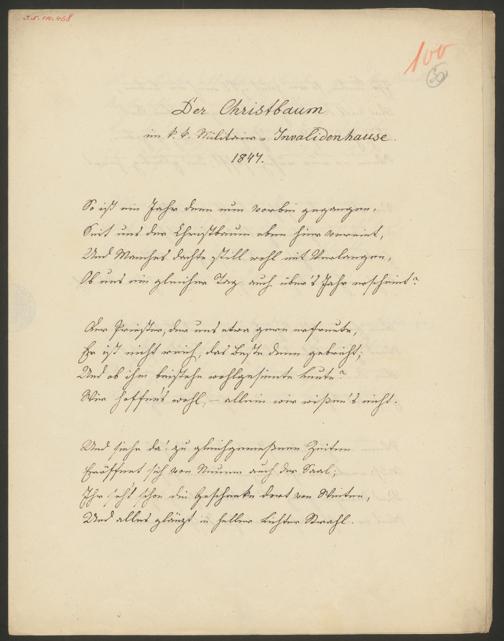 100
Der Christbaum
im k. k. Militair-Invalidenhause
1847.
So ist ein Jahr denn nun vorbei gegangen,
Seit uns der Christbaum eben hier vereint,
Und Mancher dachte still wohl mit Verlangen,
Ob uns ein gleicher Tag auch über's Jahr erscheint?
Der Priester, der uns etwa gern erfreute,
Er ist nicht reich, das Beste denn gebricht;
Und ob ihm beistehn wohlgesinnte Leute?
Wir hoffen's wohl, – allein wir wißen's nicht.
Und siehe da! zu gleichgemeßnen Zeiten
Eröffnet sich von Neuem auch der Saal,
Ihr seht schon die Geschenke dort von Weiten,
Und alles glänzt in heller Lichter Strahl.